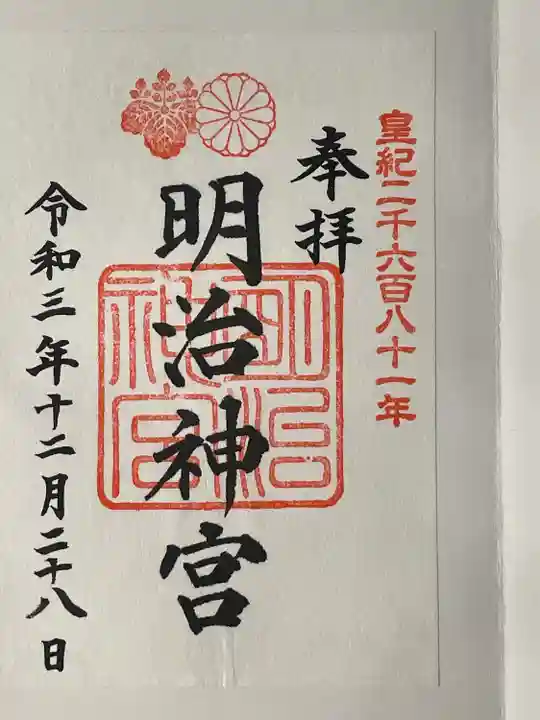 皇紀二千六百八十一年
奉拝
明治神宮
明治神宮
令和三年十二月二十八日